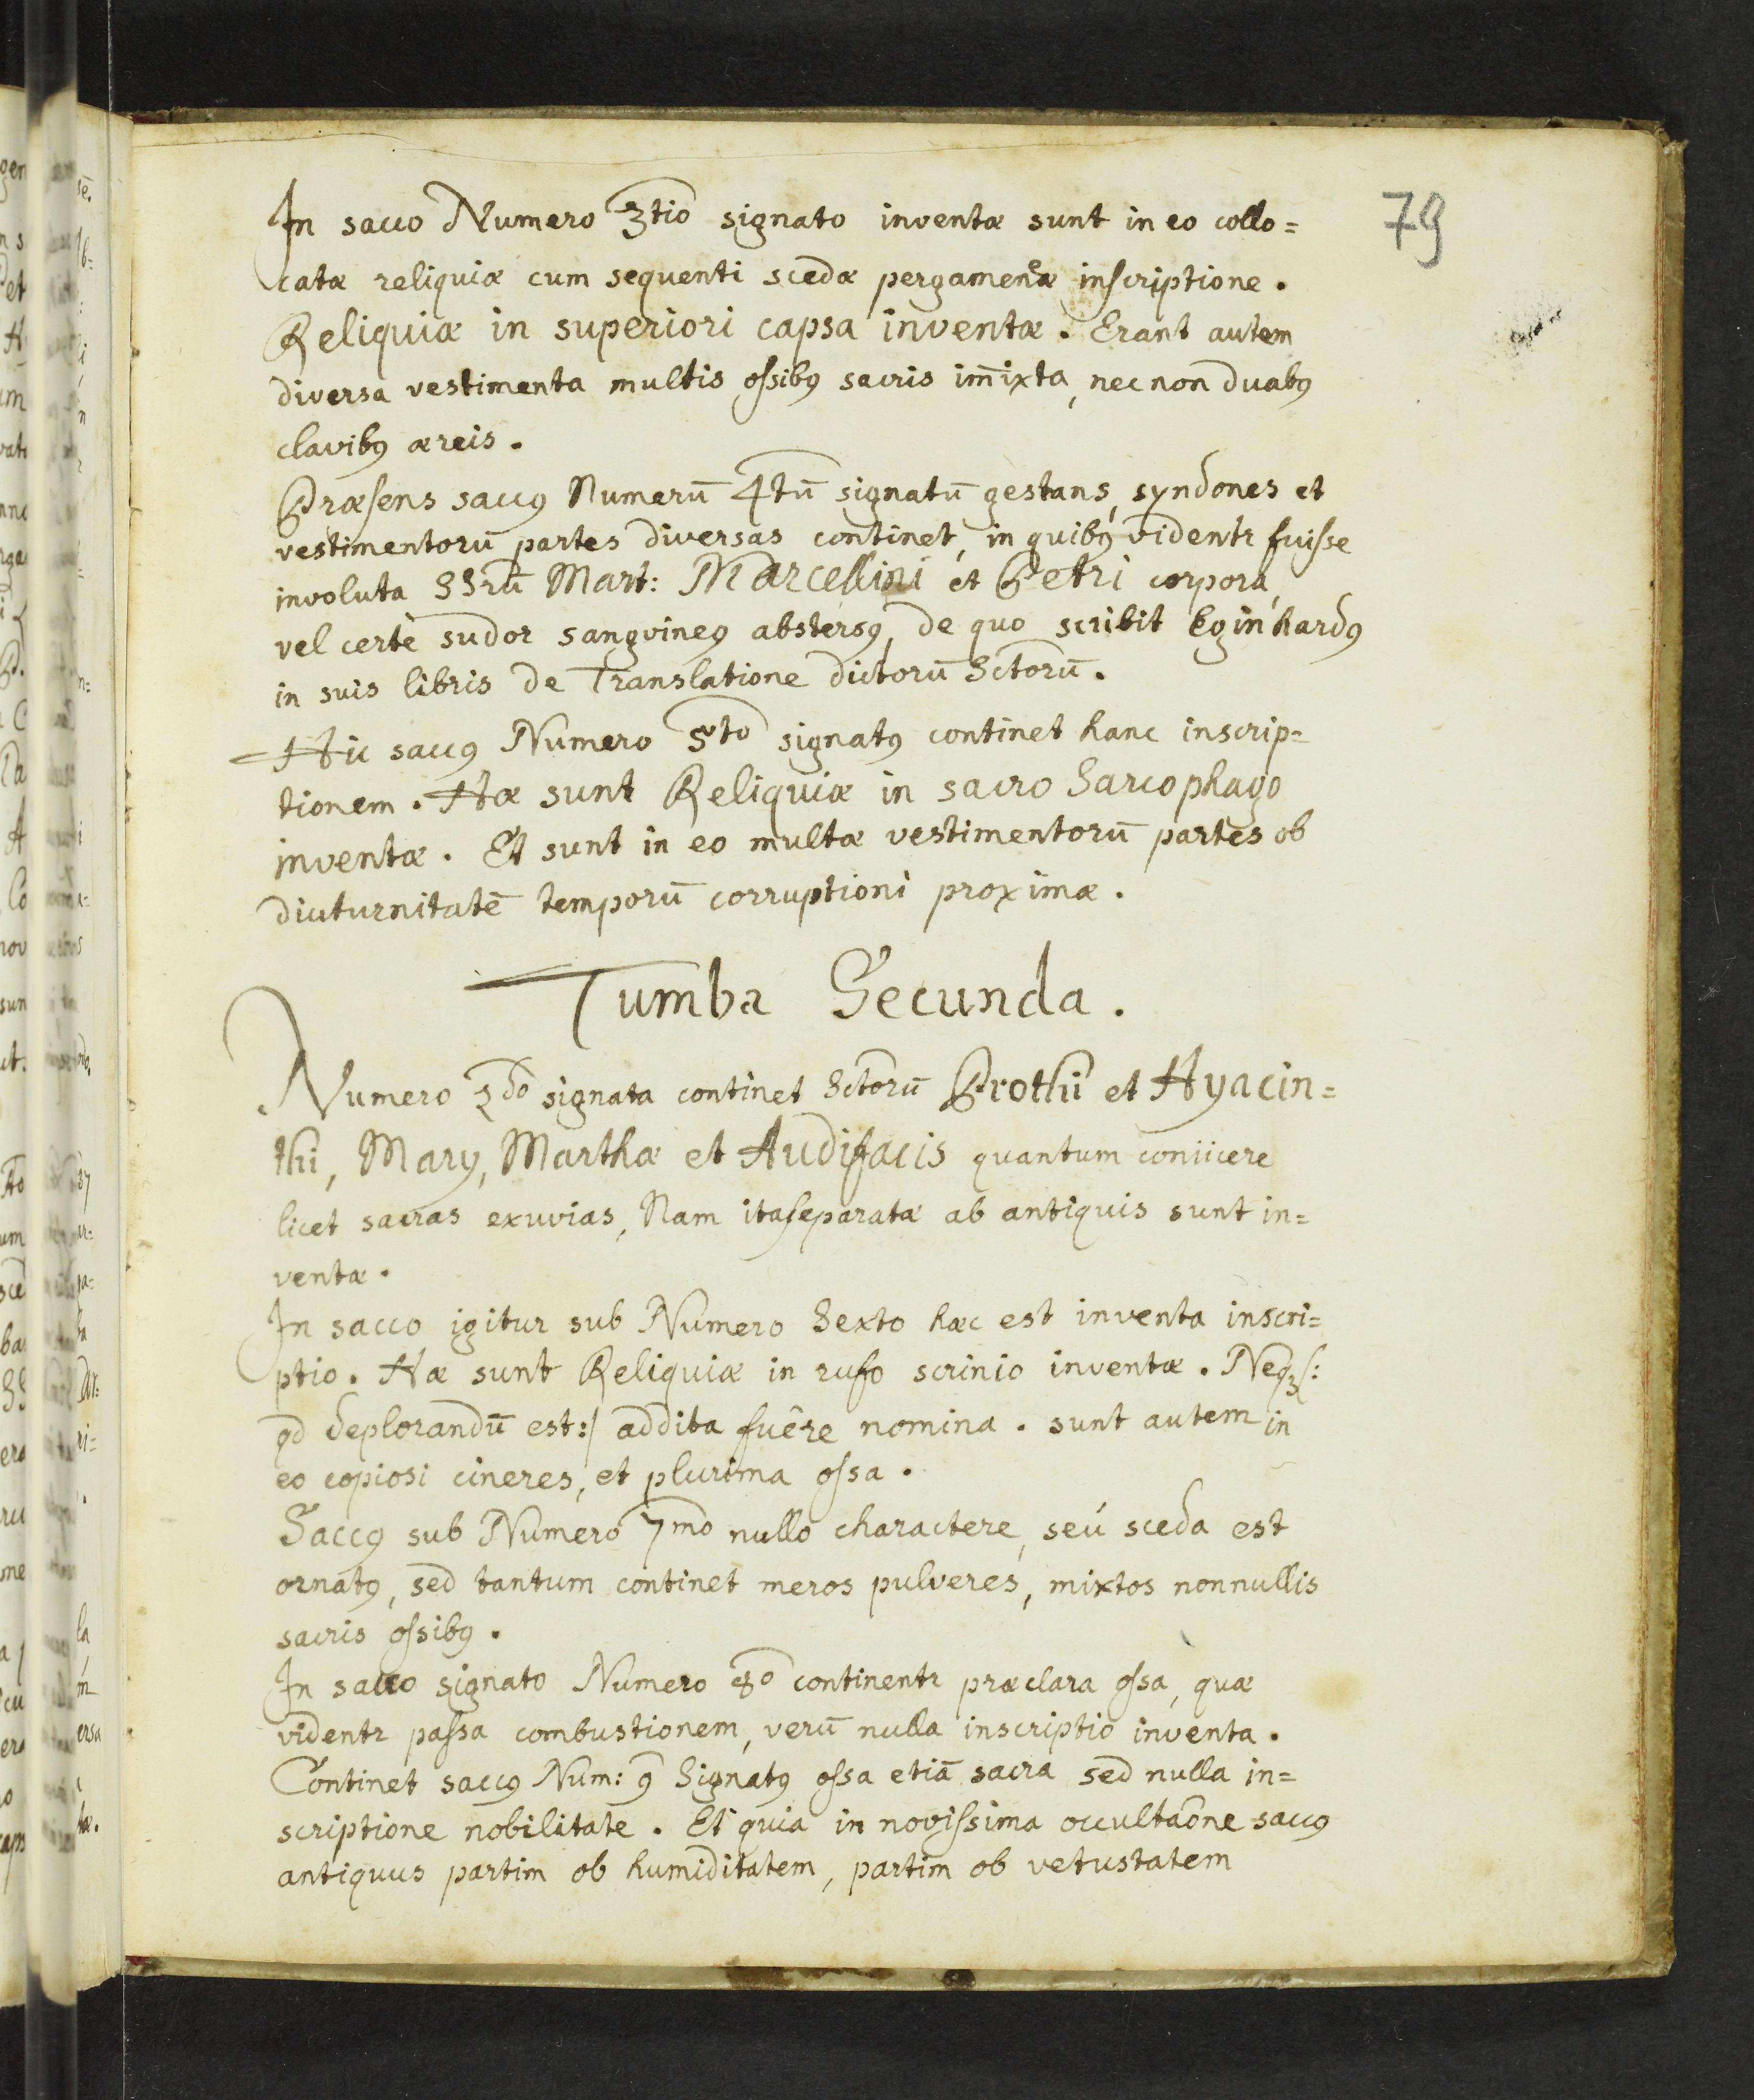 79
In sacco Numero 3tio signato inventæ sunt in eo collo=
catæ reliquiæ cum sequenti scedæ pergamenæ inscriptione.
Reliquiæ in superiori capsa inventæ. Erant autem
diversa vestimenta multis ossibꝰ sacris im̄ixta, nec non duabꝰ
clavibꝰ æreis.
Præsens saccꝰ Numerū 4tū signatū gestans, syndones et
vestimentorū partes diversas continet, in quibꝰ videntr fuisse
involuta SSrū Mart: Marcellini et Petri corpora,
vel certè sudor sangvineꝰ abstersꝰ, de quo scribit Eginhardꝰ
in suis libris de Translatione dictorū Sctorū.
Hic saccꝰ Numero 5to signatꝰ continet hanc inscrip=
tionem. Hæ sunt Reliquiæ in sacro Sarcophago
inventæ. Et sunt in eo multæ vestimentorū partes ob
diuturnitatē temporū corruptioni proximæ.
Tumba Secunda.
Numero 2do signata continet Sctorū Prothi et Hyacin=
thi, Marÿ, Marthæ et Audifacis quantum coniicere
licet sacras exuvias, Nam ita separatæ ab antiquis sunt in=
ventæ.
In sacco igitur sub Numero Sexto hæc est inventa inscri=
ptio. Hæ sunt Reliquiæ in rufo scrinio inventæ. Neqꝫ/:
qd deplorandū est:/ addita fuêre nomina. sunt autem in
eo copiosi cineres, et plurima ossa.
Saccꝰ sub Numero 7mo nullo charactere, seú sceda est
ornatꝰ, sed tantum continet meros pulveres, mixtos nonnullis
sacris ossibꝰ.
In sacco signato Numero 8o continentr præclara ossa, quæ
videntr passa combustionem, verū nulla inscriptio inventa.
Continet saccꝰ Num: 9 Signatꝰ ossa etiā sacra sed nulla in=
scriptione nobilitate. Et quia in novissima occultaōne saccꝰ
antiquus partim ob humiditatem, partim ob vetustatem